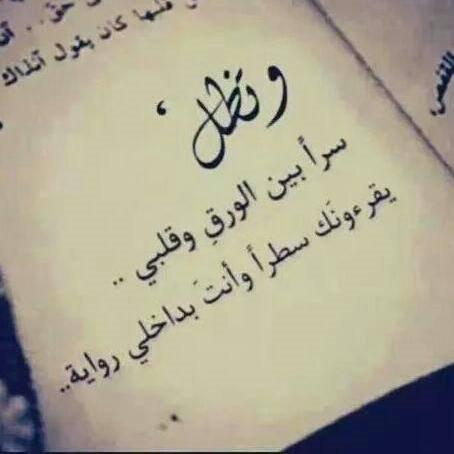 قلبها كان يقول آنذاك
وتظل،
سرأ بين الورقِ وقلبي ..
يقرءونَك سطرأ وأنتَ بداخلي رواية..